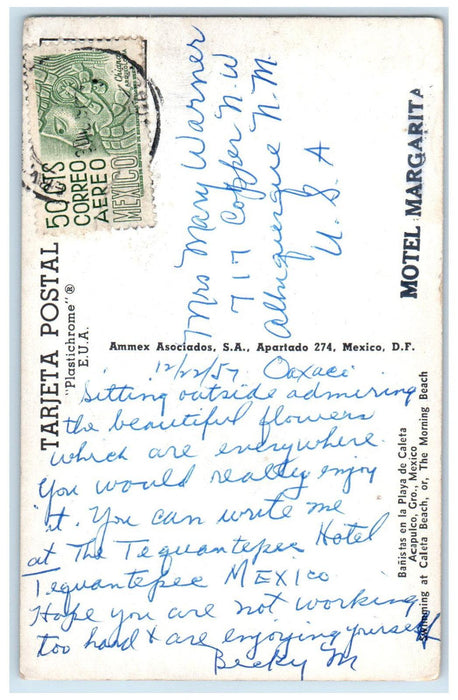 50 CTS
CORREO
AEREO
MEXICO
TARJETA POSTAL
"Plastichrome"®
E.U.A.
Mrs Mary Warner
717 Copper N.W
Albuquerque N.M.
U. S. A
MOTEL MARGARITA
Ammex Asociados, S.A., Apartado 274, Mexico, D.F.
12/22/57 Oaxaci
Sitting outside admiring
the beautiful flowers
which are everywhere.
You would really enjoy
it. You can write me
at The Teguantepec Hotel
Teguantepec MEXICO
Hope you are not working
too hard & are enjoying yourself
Becky M
Bañistas en la Playa de Caleta
Acapulco, Gro., Mexico
Swimming at Caleta Beach, or, The Morning Beach